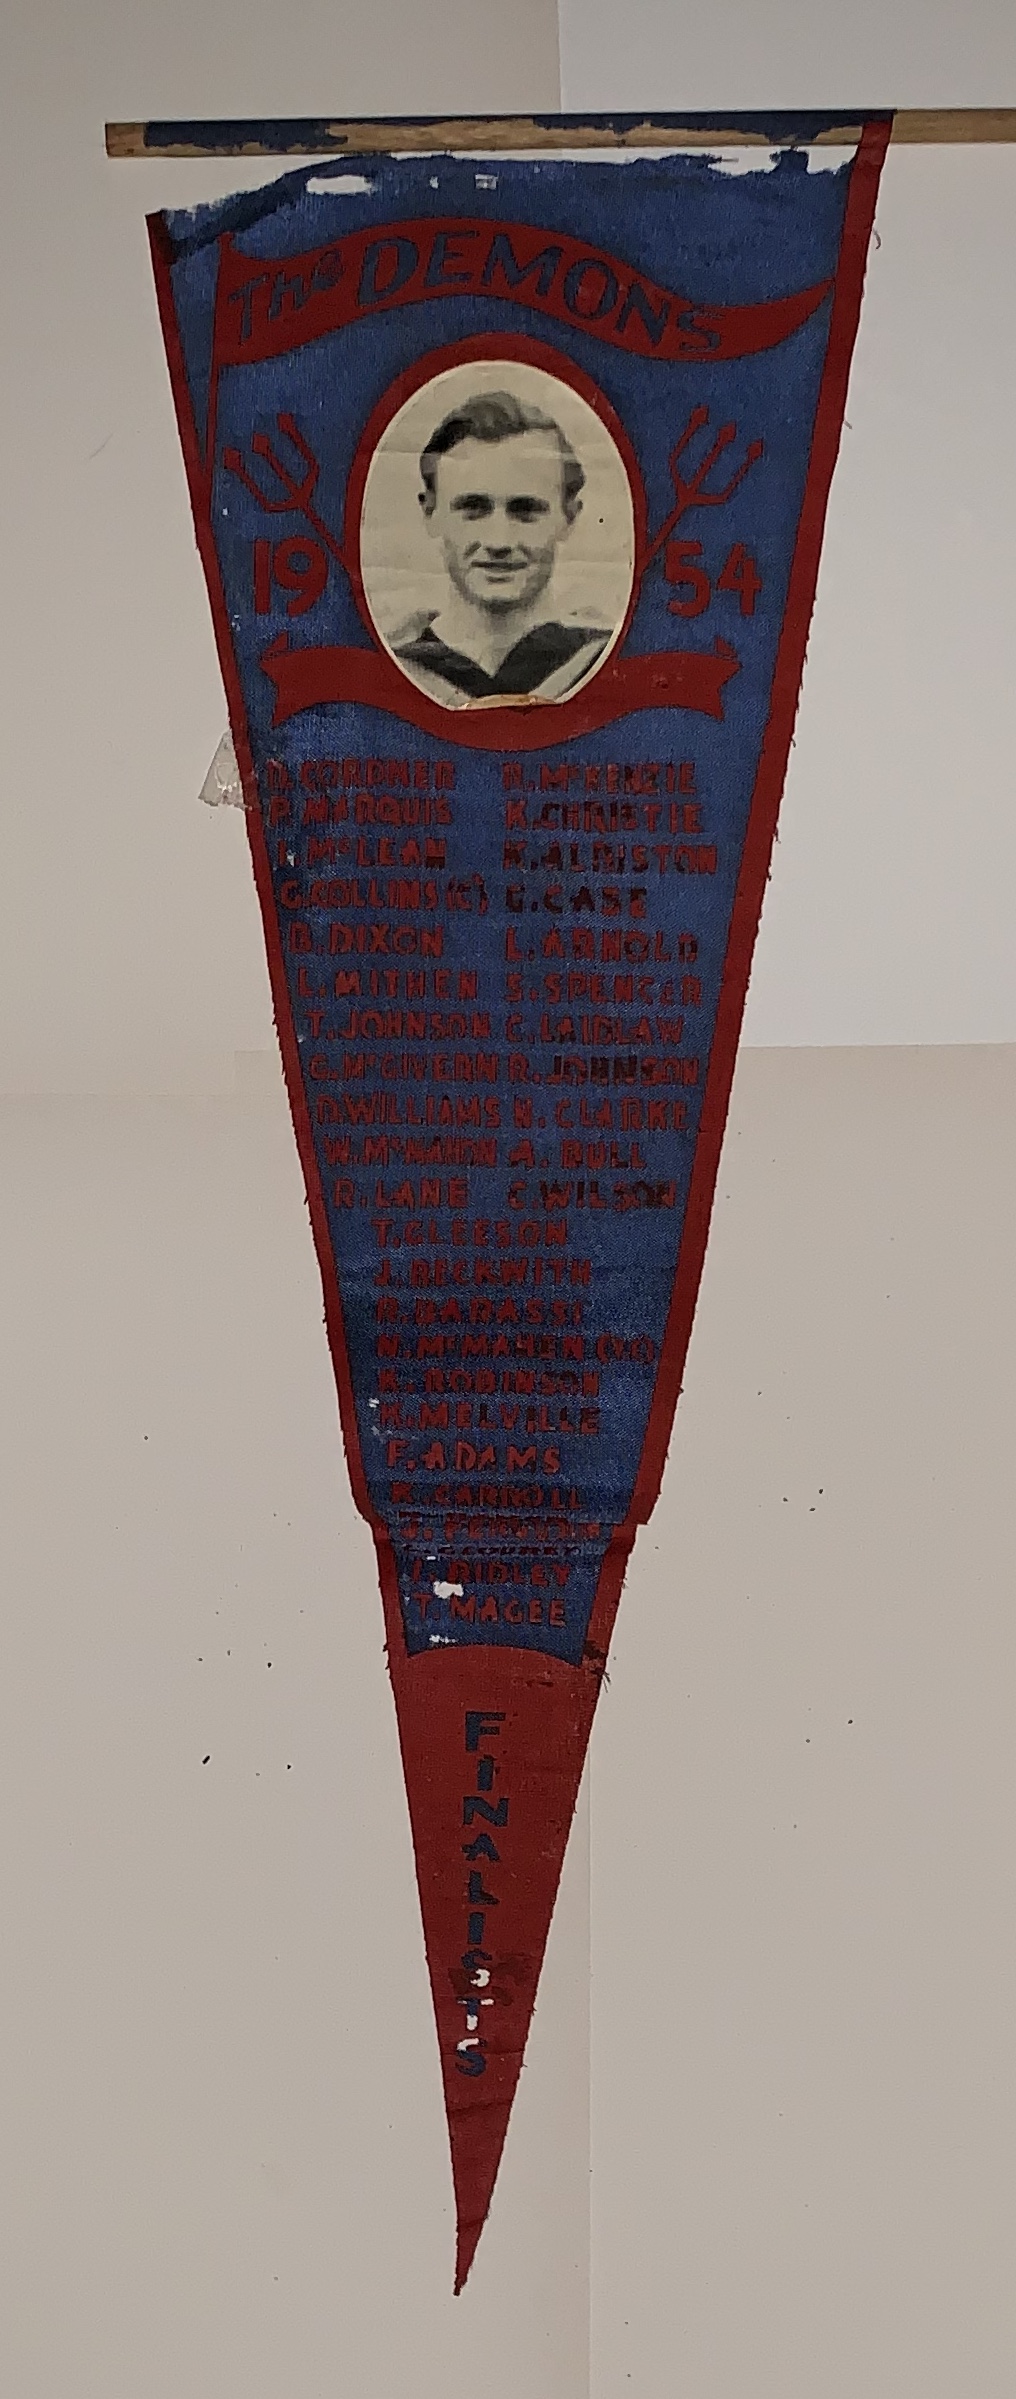 The DEMONS
19 54
D. CORDNER R. McKENZIE
P. MARQUIS K. CHRISTIE
I. McLEAN K. ALBISTON
G. COLLINS (C) G. CASE
B. DIXON L. ARNOLD
L. MITHEN S. SPENCER
T. JOHNSON C. LAIDLAW
G. McGIVERN R. JOHNSON
D. WILLIAMS N. CLARKE
W. McMAHON A. BULL
R. LANE C. WILSON
T. GLEESON
J. BECKWITH
R. BARASSI
N. McMAHEN (VC)
K. ROBINSON
K. MELVILLE
F. ADAMS
K. CARROLL
I. RIDLEY
T. MAGEE
FINALISTS